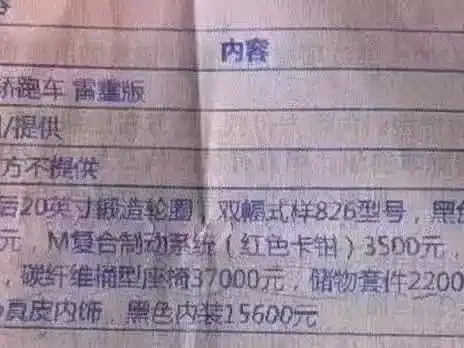 容
内容
轿跑车 雷霆版
/提供
方不提供
后20英寸锻造轮圈，双幅式样826型号，黑色
元，M复合制动系统（红色卡钳）3500元，
，碳纤维桶型座椅37000元，储物套件2200
真皮内饰，黑色内装15600元